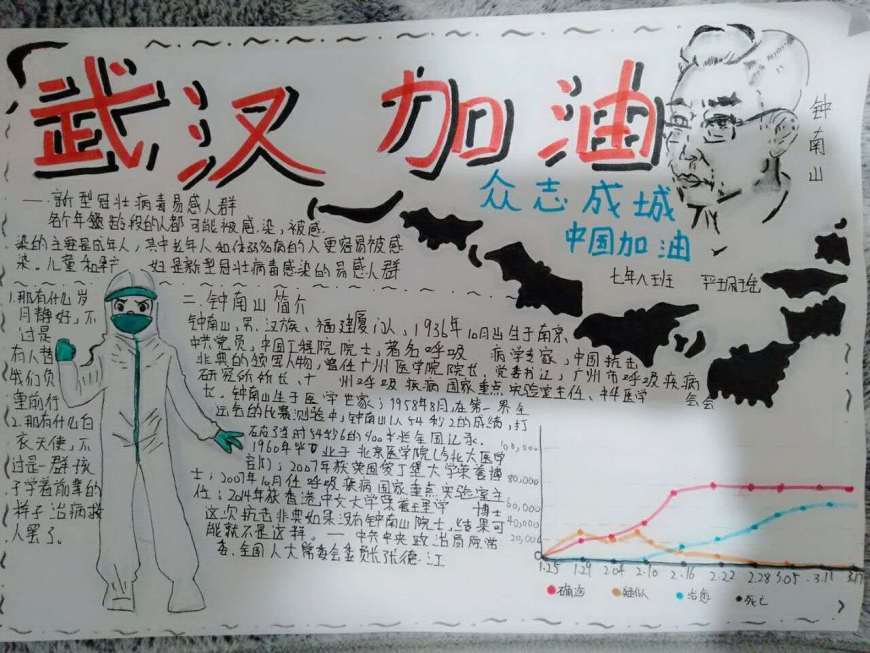 武汉 加油
钟南山
众志成城
中国加油
七年八班
一新型冠壮病毒易感人群
各个年龄段的人都可能被感染,被感
染的主要是成年人,其中老年人和体弱多病的人更容易被感
染。儿童和孕 妇是新型冠壮病毒感染的易感人群
1.那有什么岁
月静好,不
过是
有人替
我们负
重前行
2.那有什么白
衣天使,不
过是一群孩
子学着前辈的
样子治病救
人罢了。
二.钟南山简介
钟南山,男,汉族,福建厦门人,1936年10月出生于南京,
中共党员,中国工程院院士,著名呼吸 病学专家,中国抗击
非典的领军人物,曾任广州医学院院长,党委书记,广州市呼吸疾病
研究所所长、广 州呼吸疾病国家重点实验室主任、
长。钟南山出生于医学世家;1958年8月,在第一界全
运会的比赛测验中,钟南山以54秒2的成绩,打
破了当时54秒6的400米栏全国记录。
1960年毕业于北京医学院(今北大医学
部);2007年获英国爱丁堡大学荣誉博
士;2007年10月任呼吸疾病国家重点实验室主
任;2014年获香港中文大学荣誉理学 博士
这次抗击非典如果没有钟南山院士,结果可
能就不是这样。—中共中央政治局原常
委、全国人大常委会委员长张德江
80,000
60,000
40,000
20,000
0
1.25 1.29 2.04 2.10 2.16 2.22 2.28 3.05 3.11 3.17
确诊 疑似 治愈 死亡